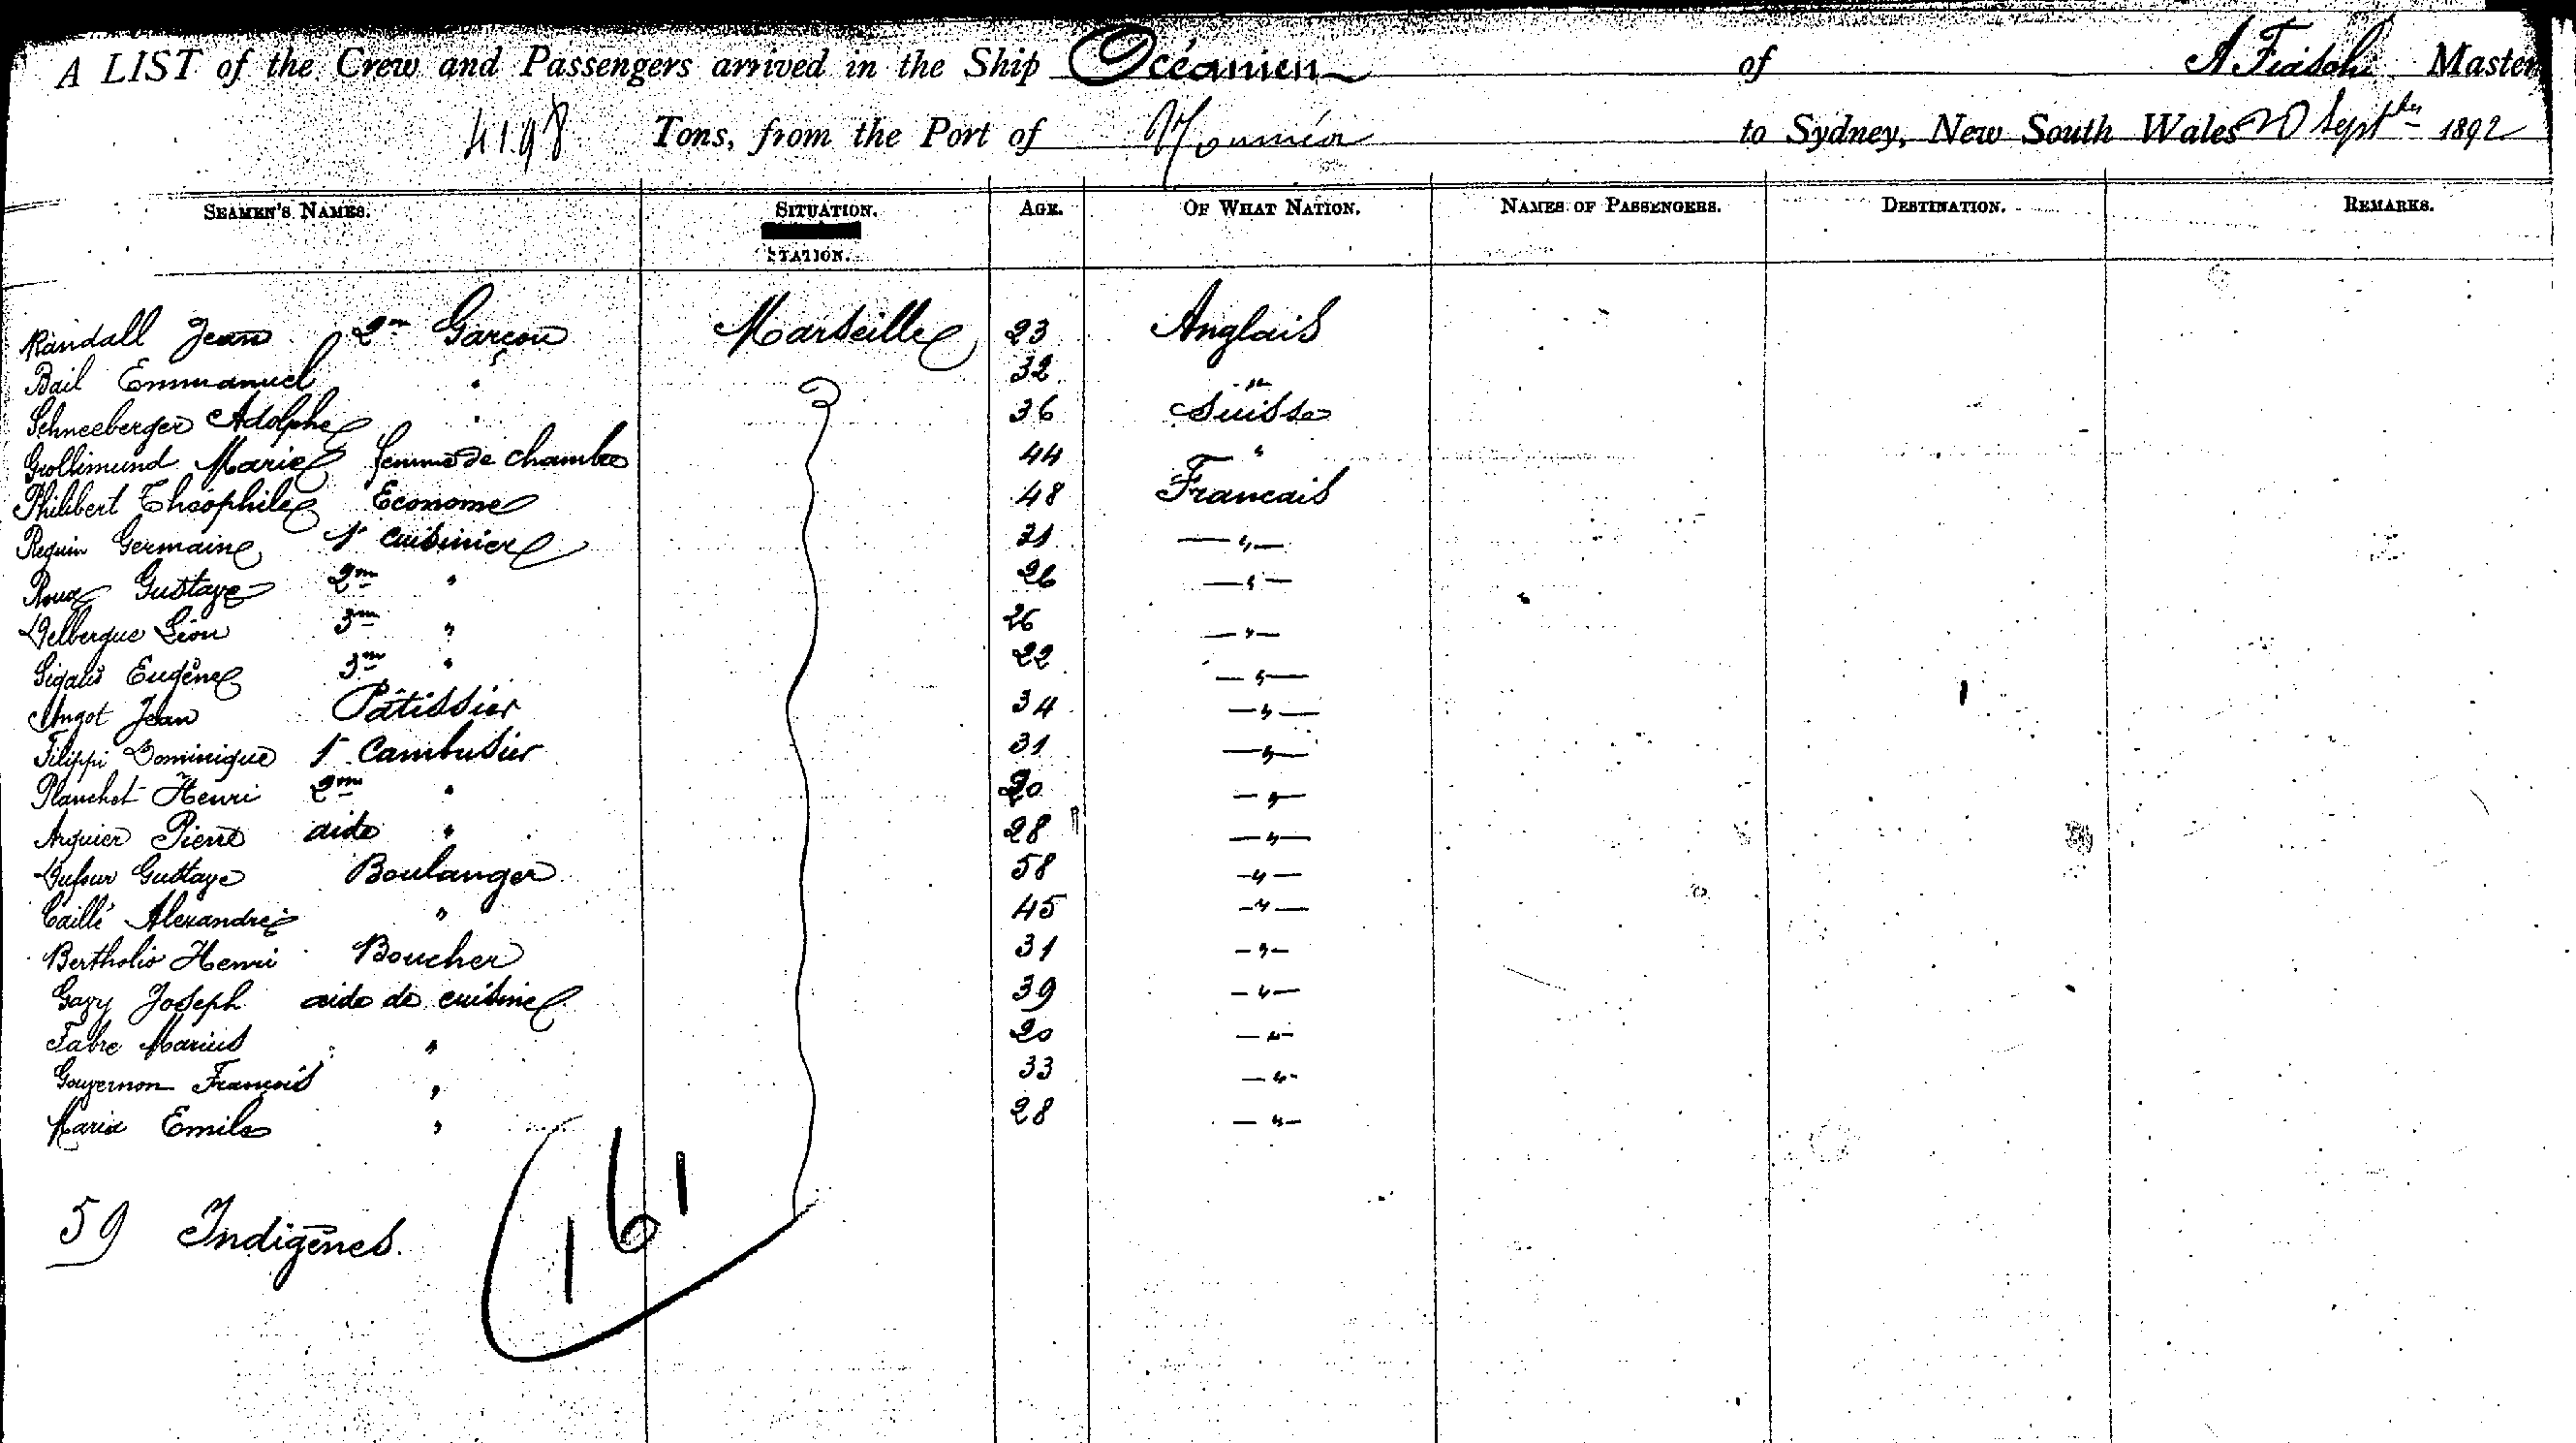 A LIST of the Crew and Passengers arrived in the Ship Océanien of A Fiaschi Master
4198 Tons, from the Port of Nouméa to Sydney, New South Wales 20 Septber 1892
SEAMEN'S NAMES. SITUATION. AGE. OF WHAT NATION. NAMES OF PASSENGERS. DESTINATION. REMARKS.
STATION.
Randall Jean 2me Garçon Marseille 23 Anglais
Bail Emmanuel " 32 "
Schneeberger Adolphe " 36 Suisse
Grollimund Marie femme de chambre 44 "
Philibert Théophile Econome 48 Francais
Requin Germain 1r cuisinier 31 "
Roux Gustave 2me " 26 "
Delbergue Léon 3me " 26 "
Sigaud Eugène 3me " 22 "
Angot Jean Pâtissier 34 "
Filippi Dominique 1r Cambusier 31 "
Planchot Henri 2me " 20 "
Arquier Pierre aide " 28 "
Dufour Gustave Boulanger 58 "
Caillé Alexandre " 45 "
Bertholio Henri Boucher 31 "
Gazy Joseph aide de cuisine 39 "
Fabre Marius " 20 "
Gouvernon François " 33 "
Marie Emile " 28 "
59 Indigènes.
161